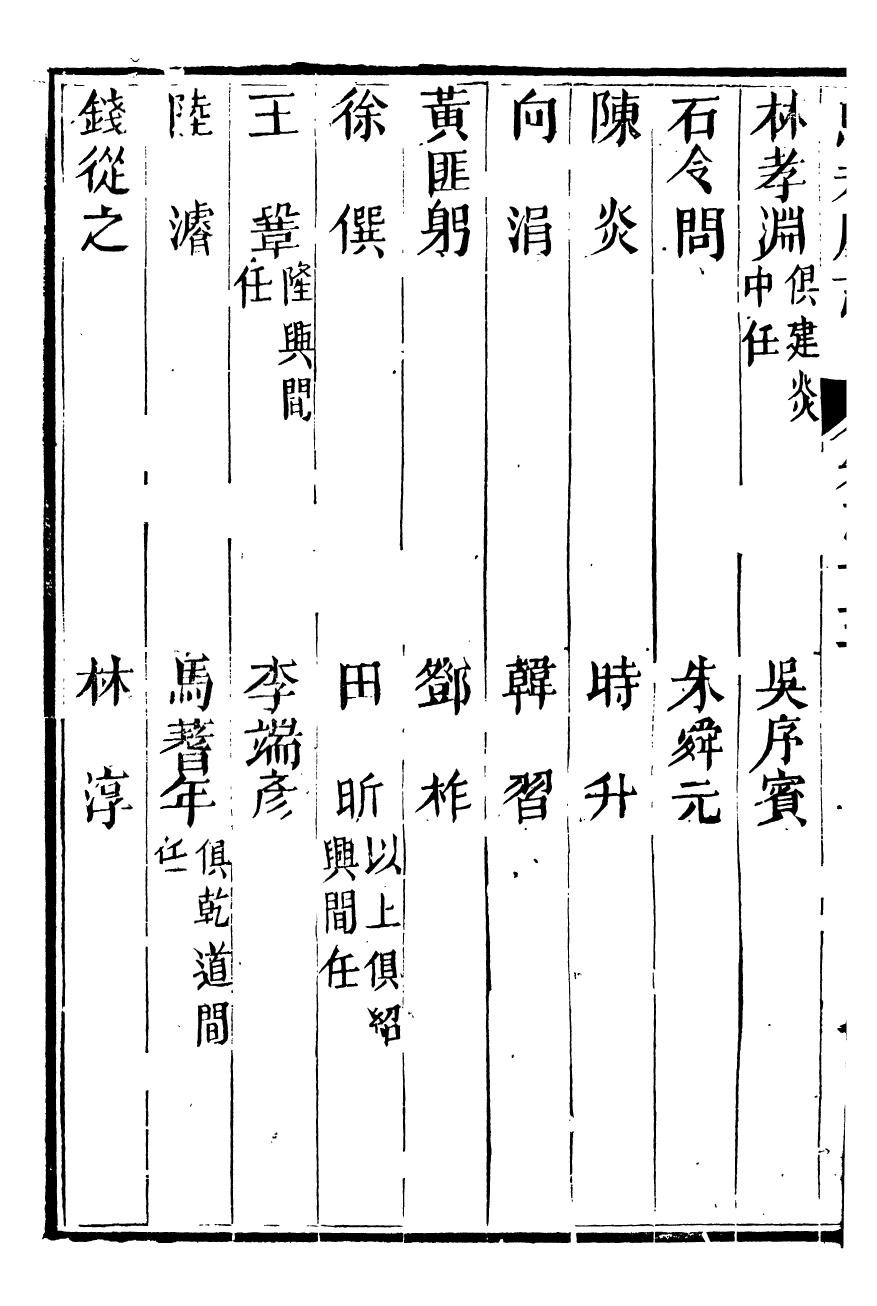 林孝淵俱建炎中任　吳序賓
石令問　朱舜元
陳炎　時升
向涓　韓習
黃匪躬　鄧柞
徐僎　田昕以上俱紹興間任
王鞏隆興間任　李端彥
陸濬　馬蓍年俱乾道間任
錢從之　林淳